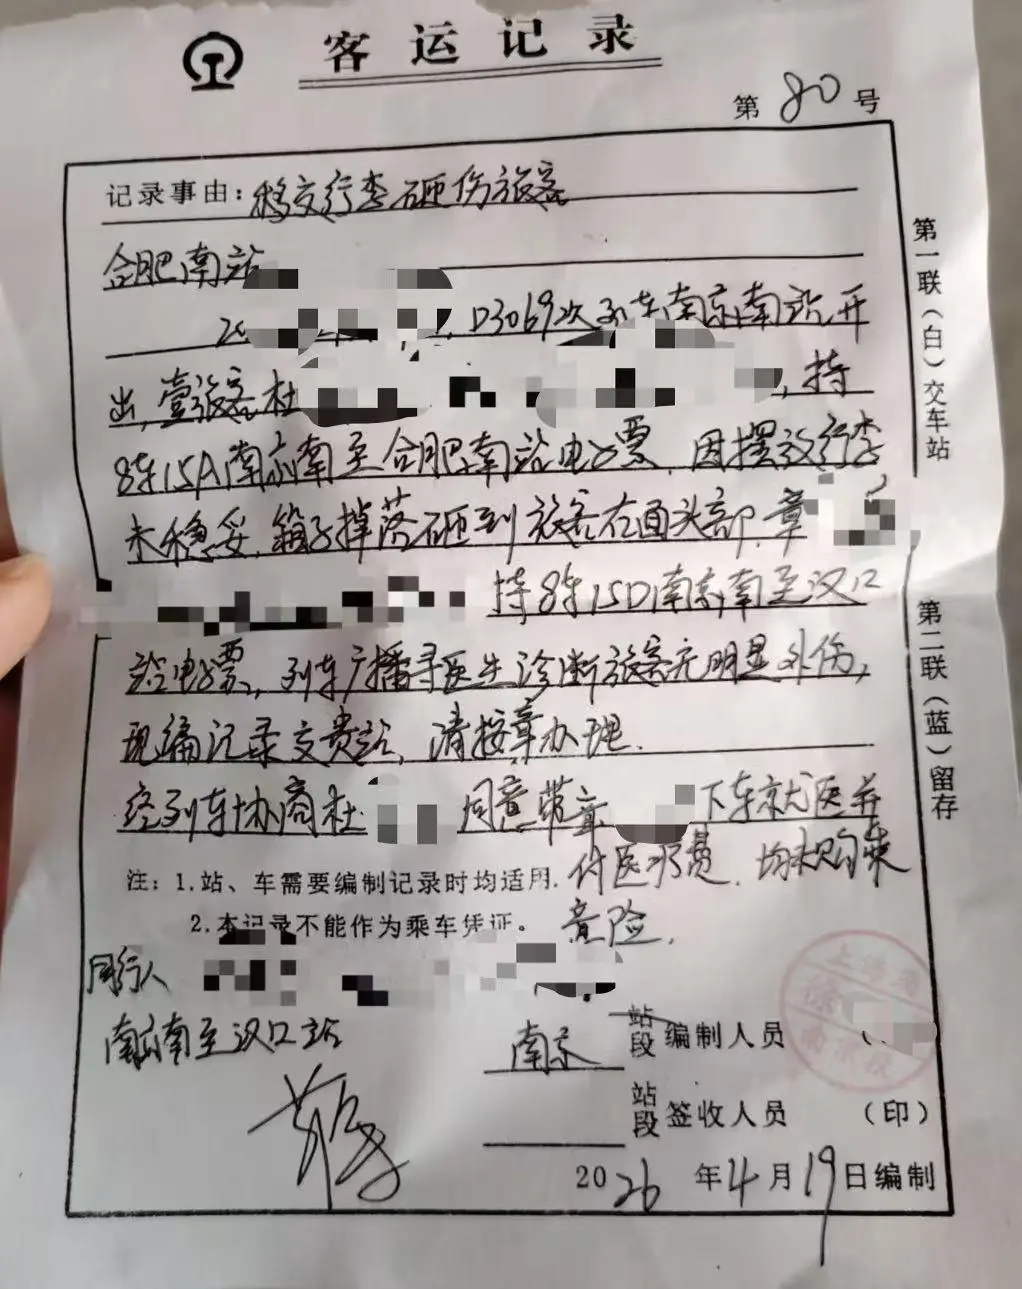 客运记录
第 80 号
记录事由：移交行李砸伤旅客
合肥南站
D3069次列车南京南站开
出，壹旅客杜 ，持
8车15A南京南至合肥南站电子票，因摆放行李
未稳妥，箱子掉落砸到旅客左面头部，章
持8车15D南京南至汉口
站电子票，列车广播寻医生诊断旅客无明显外伤，
现编记录交贵站，请按章办理．
经列车协商杜 同意带章 下车就医并
付医疗费．均未购乘
意险．
注：1.站、车需要编制记录时均适用．
2.本记录不能作为乘车凭证。
同行人
南京南至汉口站
南京 站段 编制人员
站段 签收人员 （印）
2026 年 4 月 19 日编制
第一联（白）交车站
第二联（蓝）留存
上海
南京段